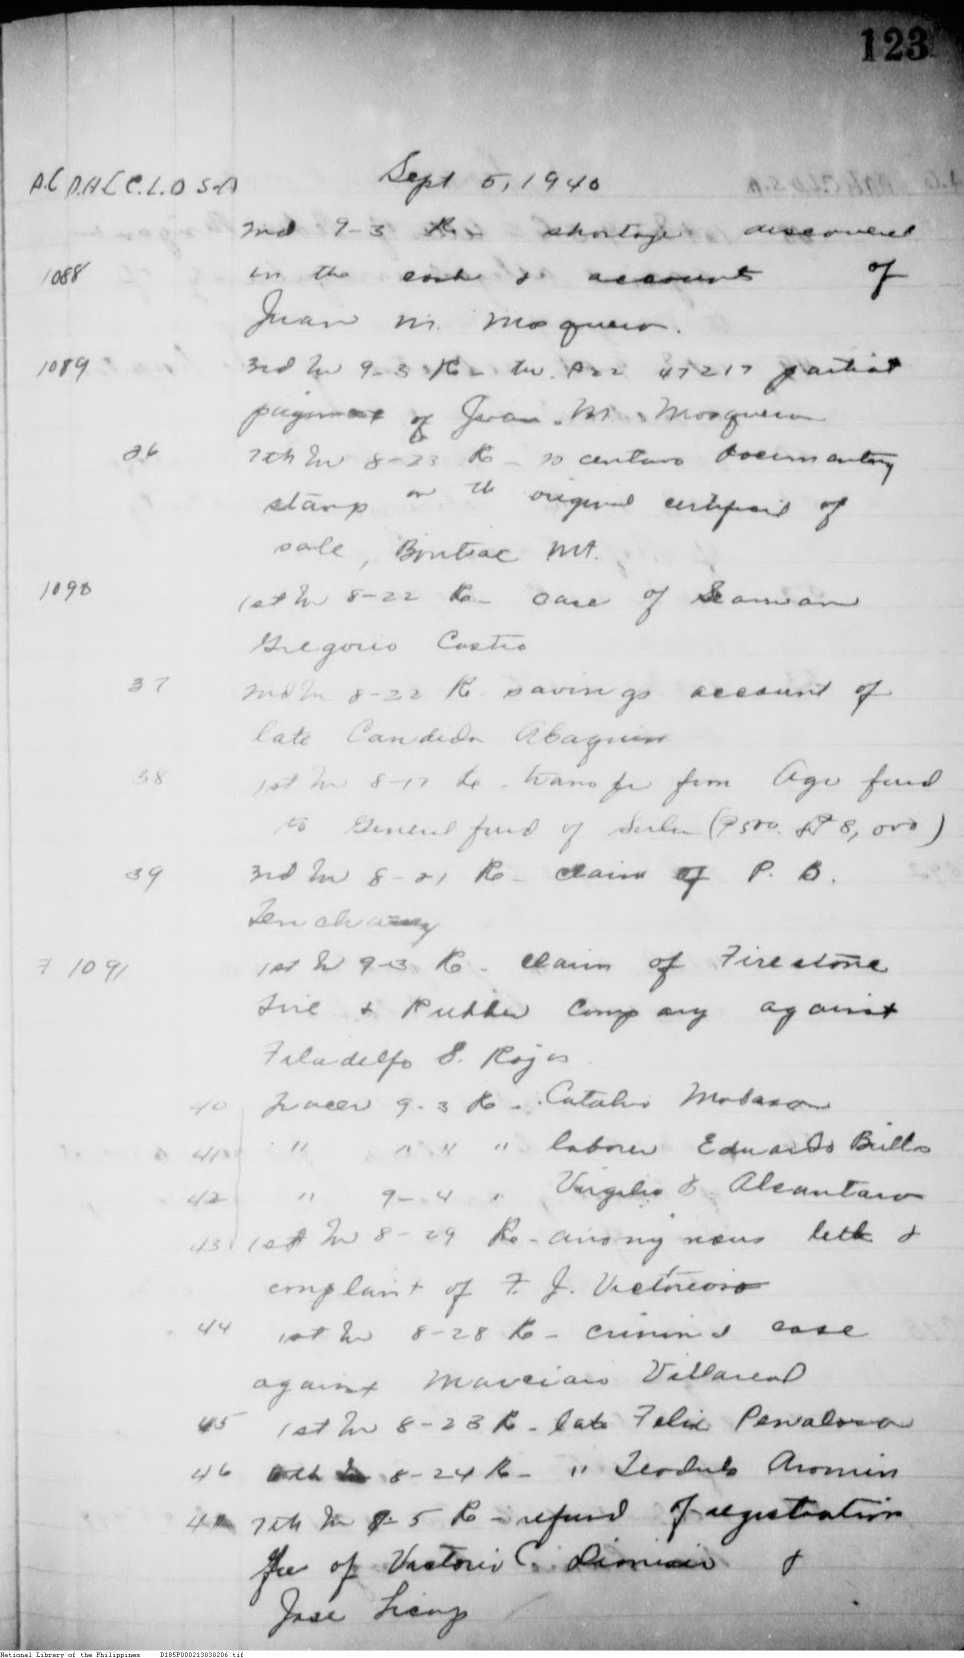 123
A.C D.A.C C.L.O S-A
Sept 5, 1940
2nd 9-3 Re shortage discovered
1088 in the cash & accounts of
Juan M. Mosquera.
1089 3rd In 9-3 Re - tw. P22 47217 partial
payment of Juan M. Mosquera
36 7th In 8-23 Re - 20 centavo documentary
stamp on the original certificate of
sale, Pontiac Mt.
1090 1st In 8-22 Re - case of Seaman
Gregorio Castro
37 2nd In 8-22 Re savings account of
late Candida Abaquin
38 1st In 8-17 Re - transfer from Agr fund
to General fund of (P500. 8,000)
39 3rd In 8-21 Re - claim of P. B.
Tenchavez
7 1091 1st In 9-3 Re - claim of Firestone
Tire & Rubber Company against
Filadelfo S. Rojas
40 Tracer 9-3 Re - Catalio
41 " " " " laborer Eduardo
42 " 9-4 " Virgilio Alcantara
43 1st In 8-29 Re - anonymous letter &
complaint of F. J. Victorioso
44 1st In 8-28 Re - criminal case
against Marciano Villareal
45 1st In 8-23 Re - late Felix Penalosa
46 8-24 Re - " Teodulo Aromin
7th In 8-5 Re - refund of registration
fee of Victorio C. Dionisio &
Jose Licup
National Library of the Philippines D185P000213838206.tif